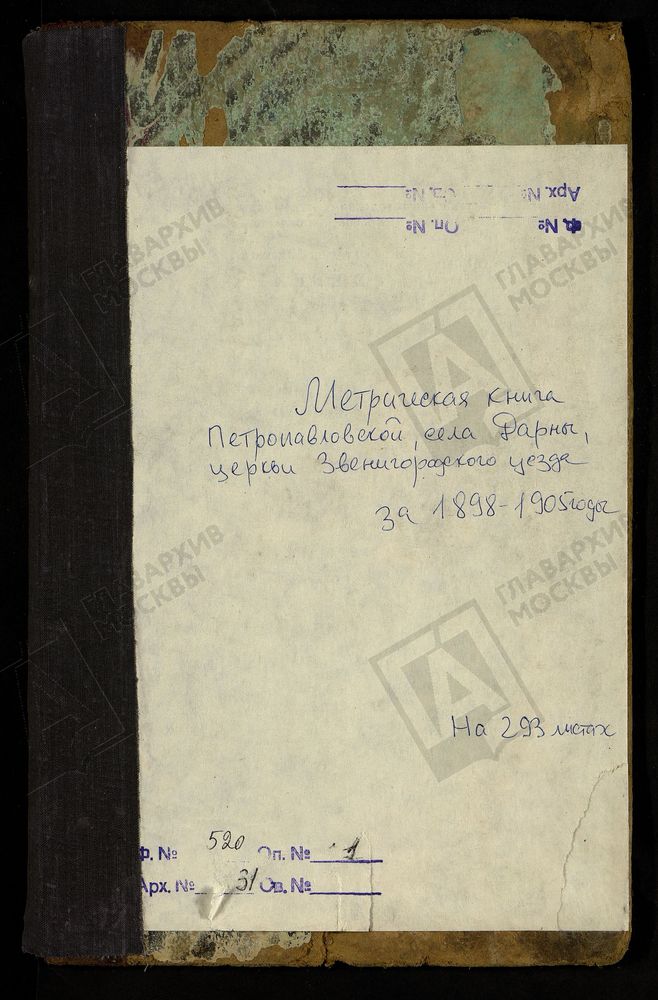 Арх. № Св. №
Ф. № Оп. №
Метрическая книга
Петропавловской, села Дарны,
церкви Звенигородского уезда
за 1898-1905 годы
На 293 листах
Ф. № 520 Оп. № 1
Арх. № 31 Св. №
ГЛАВАРХИВ
МОСКВЫ
ГЛАВАРХИВ
МОСКВЫ
ГЛАВАРХИВ
МОСКВЫ
ГЛАВАРХИВ
МОСКВЫ